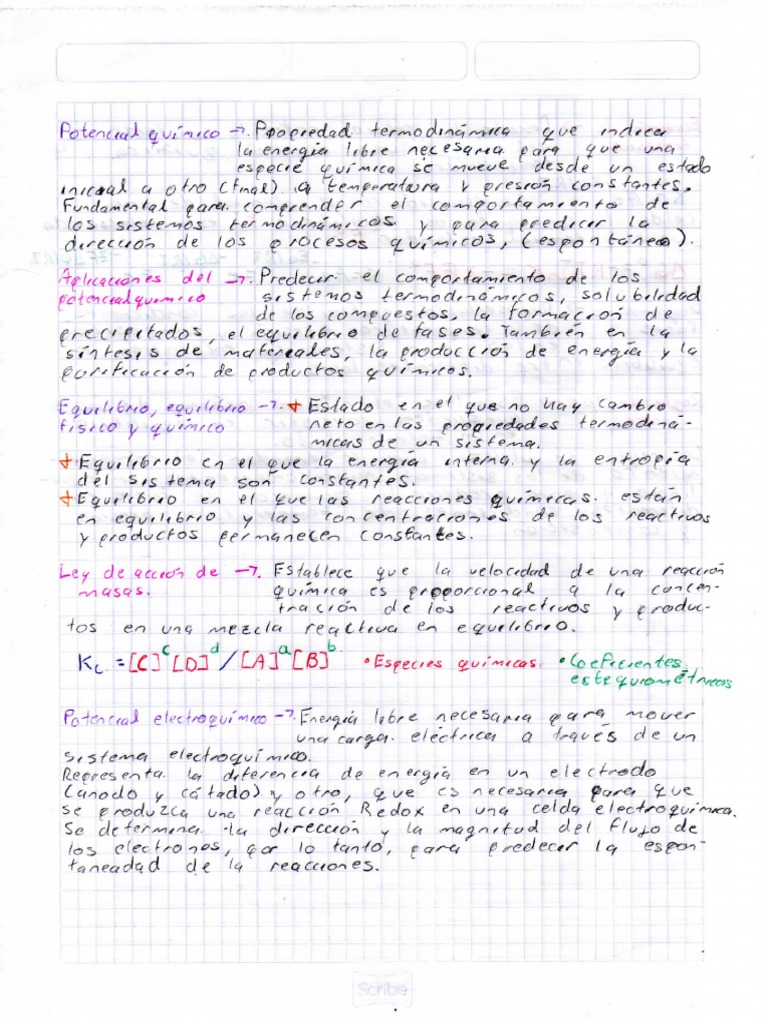 Potencial químico →. Propiedad termodinámica que indica
la energía libre necesaria para que una
especie química se mueve desde un estado
inicial a otro (final) a temperatura y presión constantes.
Fundamental para comprender el comportamiento de
los sistemos termodinámicos y para predicir la
dirección de los procesos químicos, (espontáneo).
Aplicaciones del →. Predecir el comportamiento de los
potencial químico sistemos termodinámicos, solubilidad
de los compuestos, la formación de
precipitados, el equilibrio de fases. También en la
síntesis de materiales, la producción de energía y la
purificación de productos químicos.
Equilibrio, equilibrio →. + Estado en el que no hay cambio
físico y químico neto en las propiedades termodiná-
micas de un sistema.
+ Equilibrio en el que la energía interna y la entropía
del sistema son constantes.
+ Equilibrio en el que las reacciones químicas están
en equilibrio y las concentraciones de los reactivos
y productos permanecen constantes.
Ley de acción de →. Establece que la velocidad de una reacción
masas. química es proporcional a la concen-
tración de los reactivos y produc-
tos en una mezcla reactiva en equilibrio.
Kc = [C]^c [D]^d / [A]^a [B]^b • Especies químicas • Coeficientes
estequiométricos
Potencial electroquímico →. Energía libre necesaria para mover
una carga eléctrica a través de un
sistema electroquímico.
Representa la diferencia de energía en un electrodo
(ánodo y cátado) y otro, que es necesaria para que
se produzca una reacción Redox en una celda electroquímica.
Se determina la dirección y la magnitud del flujo de
los electrones, por lo tanto, para predecir la espon-
taneadad de la reacciones.
Scribe